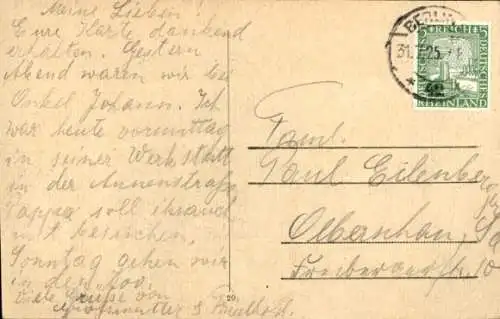 Meine Lieben!
Eure Karte dankend
erhalten. Gestern
Abend waren wir bei
Onkel Johann. Ich
war heute vormittag
in seiner Werkstatt
in der Annenstraße
Pappa soll ihr auch
mit besichen.
Sonntag gehen wir
in den Zoo.
Viele Grüsse von
Grossmutter &
20
BERLIN
31.7.25
5 DEUTSCHES REICH 5
RHEINLAND
Faml.
Paul Eilenberger
Olbernhau, Sa
Freibergerstr. 10